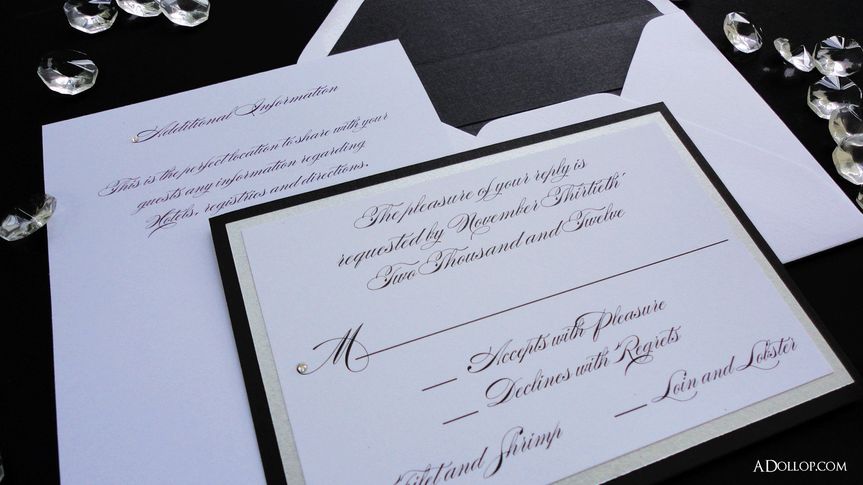 Additional Information
This is the perfect location to share with your
guests any information regarding
Hotels, registries and directions.
The pleasure of your reply is
requested by November Thirtieth
Two Thousand and Twelve
M
Accepts with Pleasure
Declines with Regrets
Filet and Shrimp
Loin and Lobster
ADOLLOP.COM